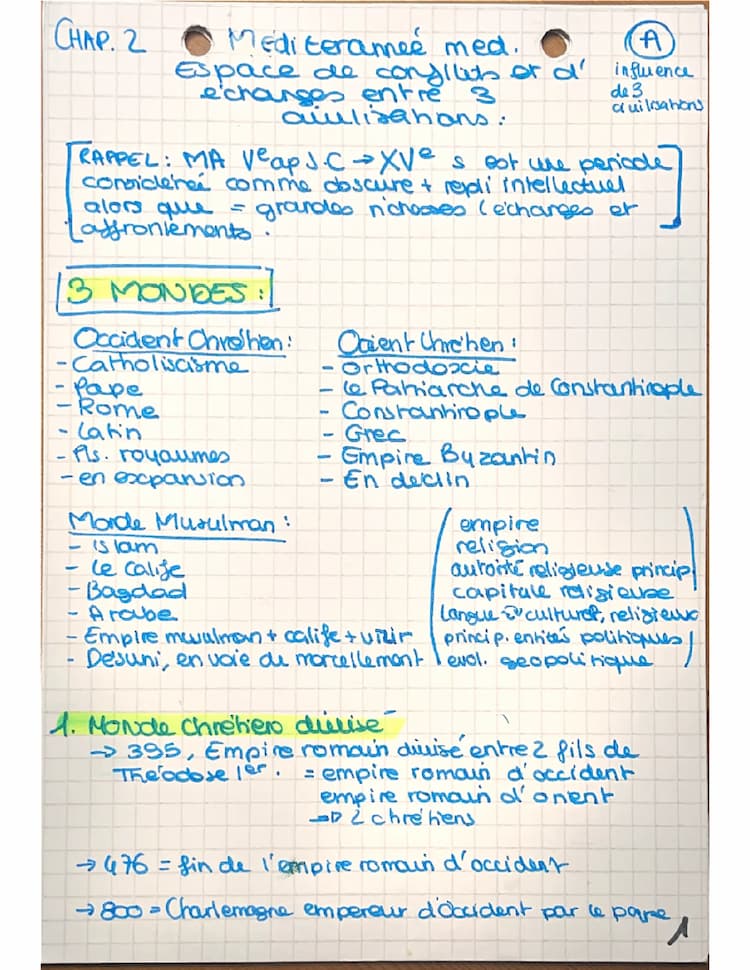 CHAP. 2 Mediteranneé med. A
Espace de conflits et d' influence
échanges entre 3 de 3
civilisations. civilisations
RAPPEL: MA Ve ap J.C → XVe s est une periode
considéreé comme obscure + repli intellectuel
alors que = grandes richesses (échanges et
affrontements.
3 MONDES:
Occident Chrétien:
- Catholiscisme
- Pape
- Rome
- Latin
- Pls. royaumes
- en expansion
Orient Chrétien:
- Orthodoxie
- Le Patriarche de Constantinople
- Constantinople
- Grec
- Empire Byzantin
- En declin
Monde Musulman:
- islam
- Le Calife
- Bagdad
- Arabe
- Empire musulman + calife + vizir
- Désuni, en voie du morcellement
(empire
religion
autorité religieuse princip
capitale religieuse
langue culturel, religieux
princip. entités politiques
evol. geopolitique)
1. Monde chrétien divisé
→ 395, Empire romain divisé entre 2 fils de
Théodose 1er. = empire romain d'occident
empire romain d'orient
→ 2 chrétiens
→ 476 = fin de l'empire romain d'occident
→ 800 = Charlemagne empereur d'Occident par le pape
1